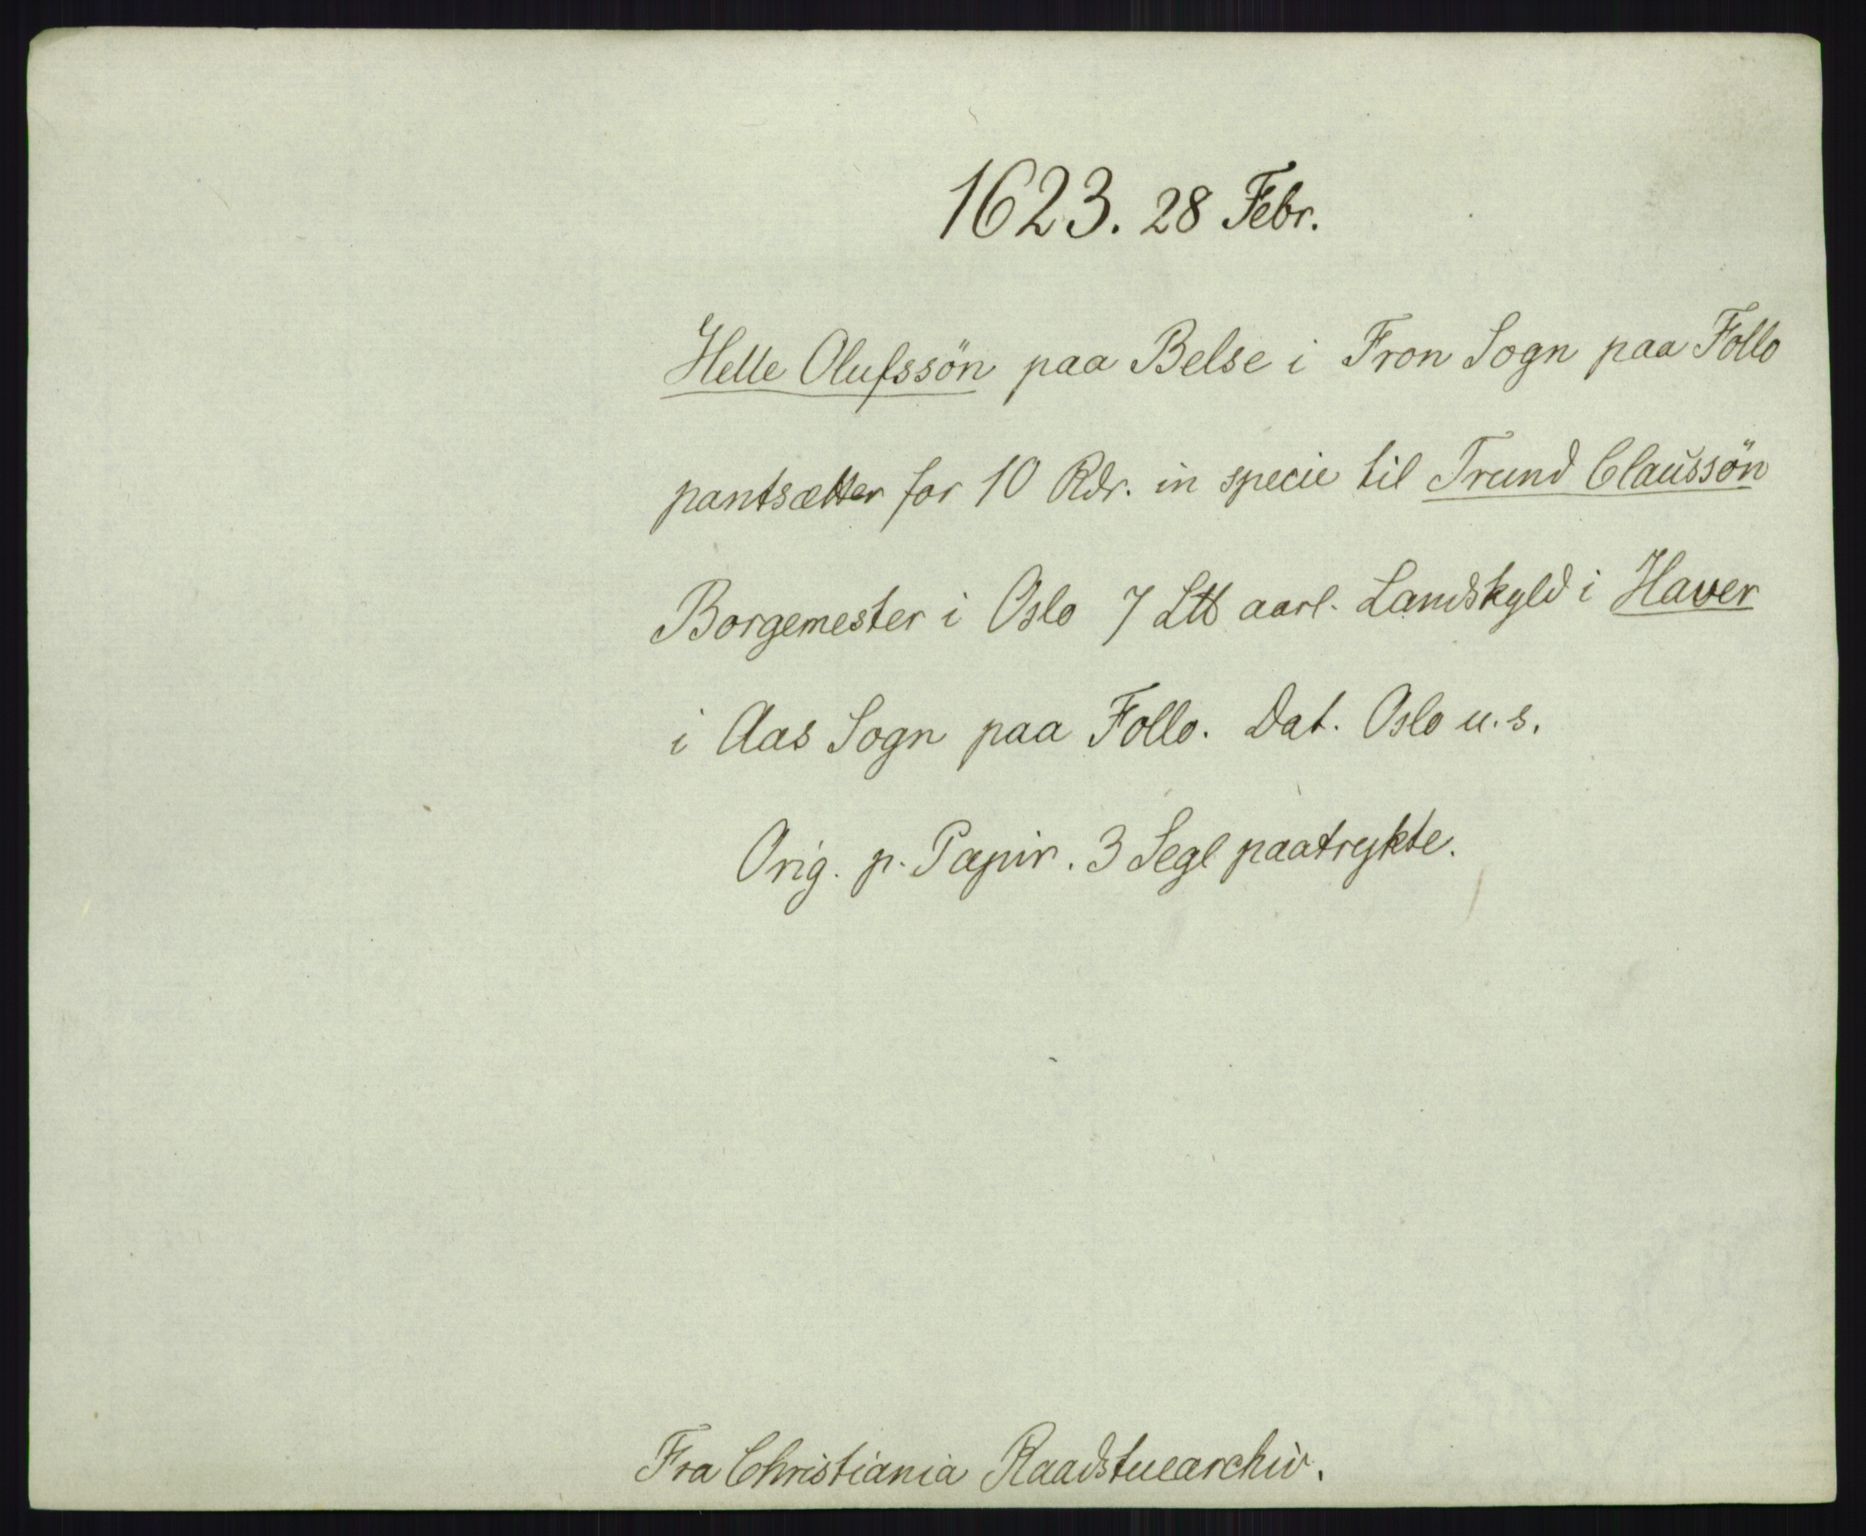 1623. 28 Febr.
Helle Olufssön paa Belse i Fron Sogn paa Follo
pantsætter for 10 Rdr. in specie til Trund Claussön
Borgemester i Oslo 7 L℔ aarl. Landskyld i Haver
i Aas Sogn paa Follo. Dat. Oslo u. s.
Orig. p. Papir. 3 Segl paatrykte.
Fra Christiania Raadstuearchiv.